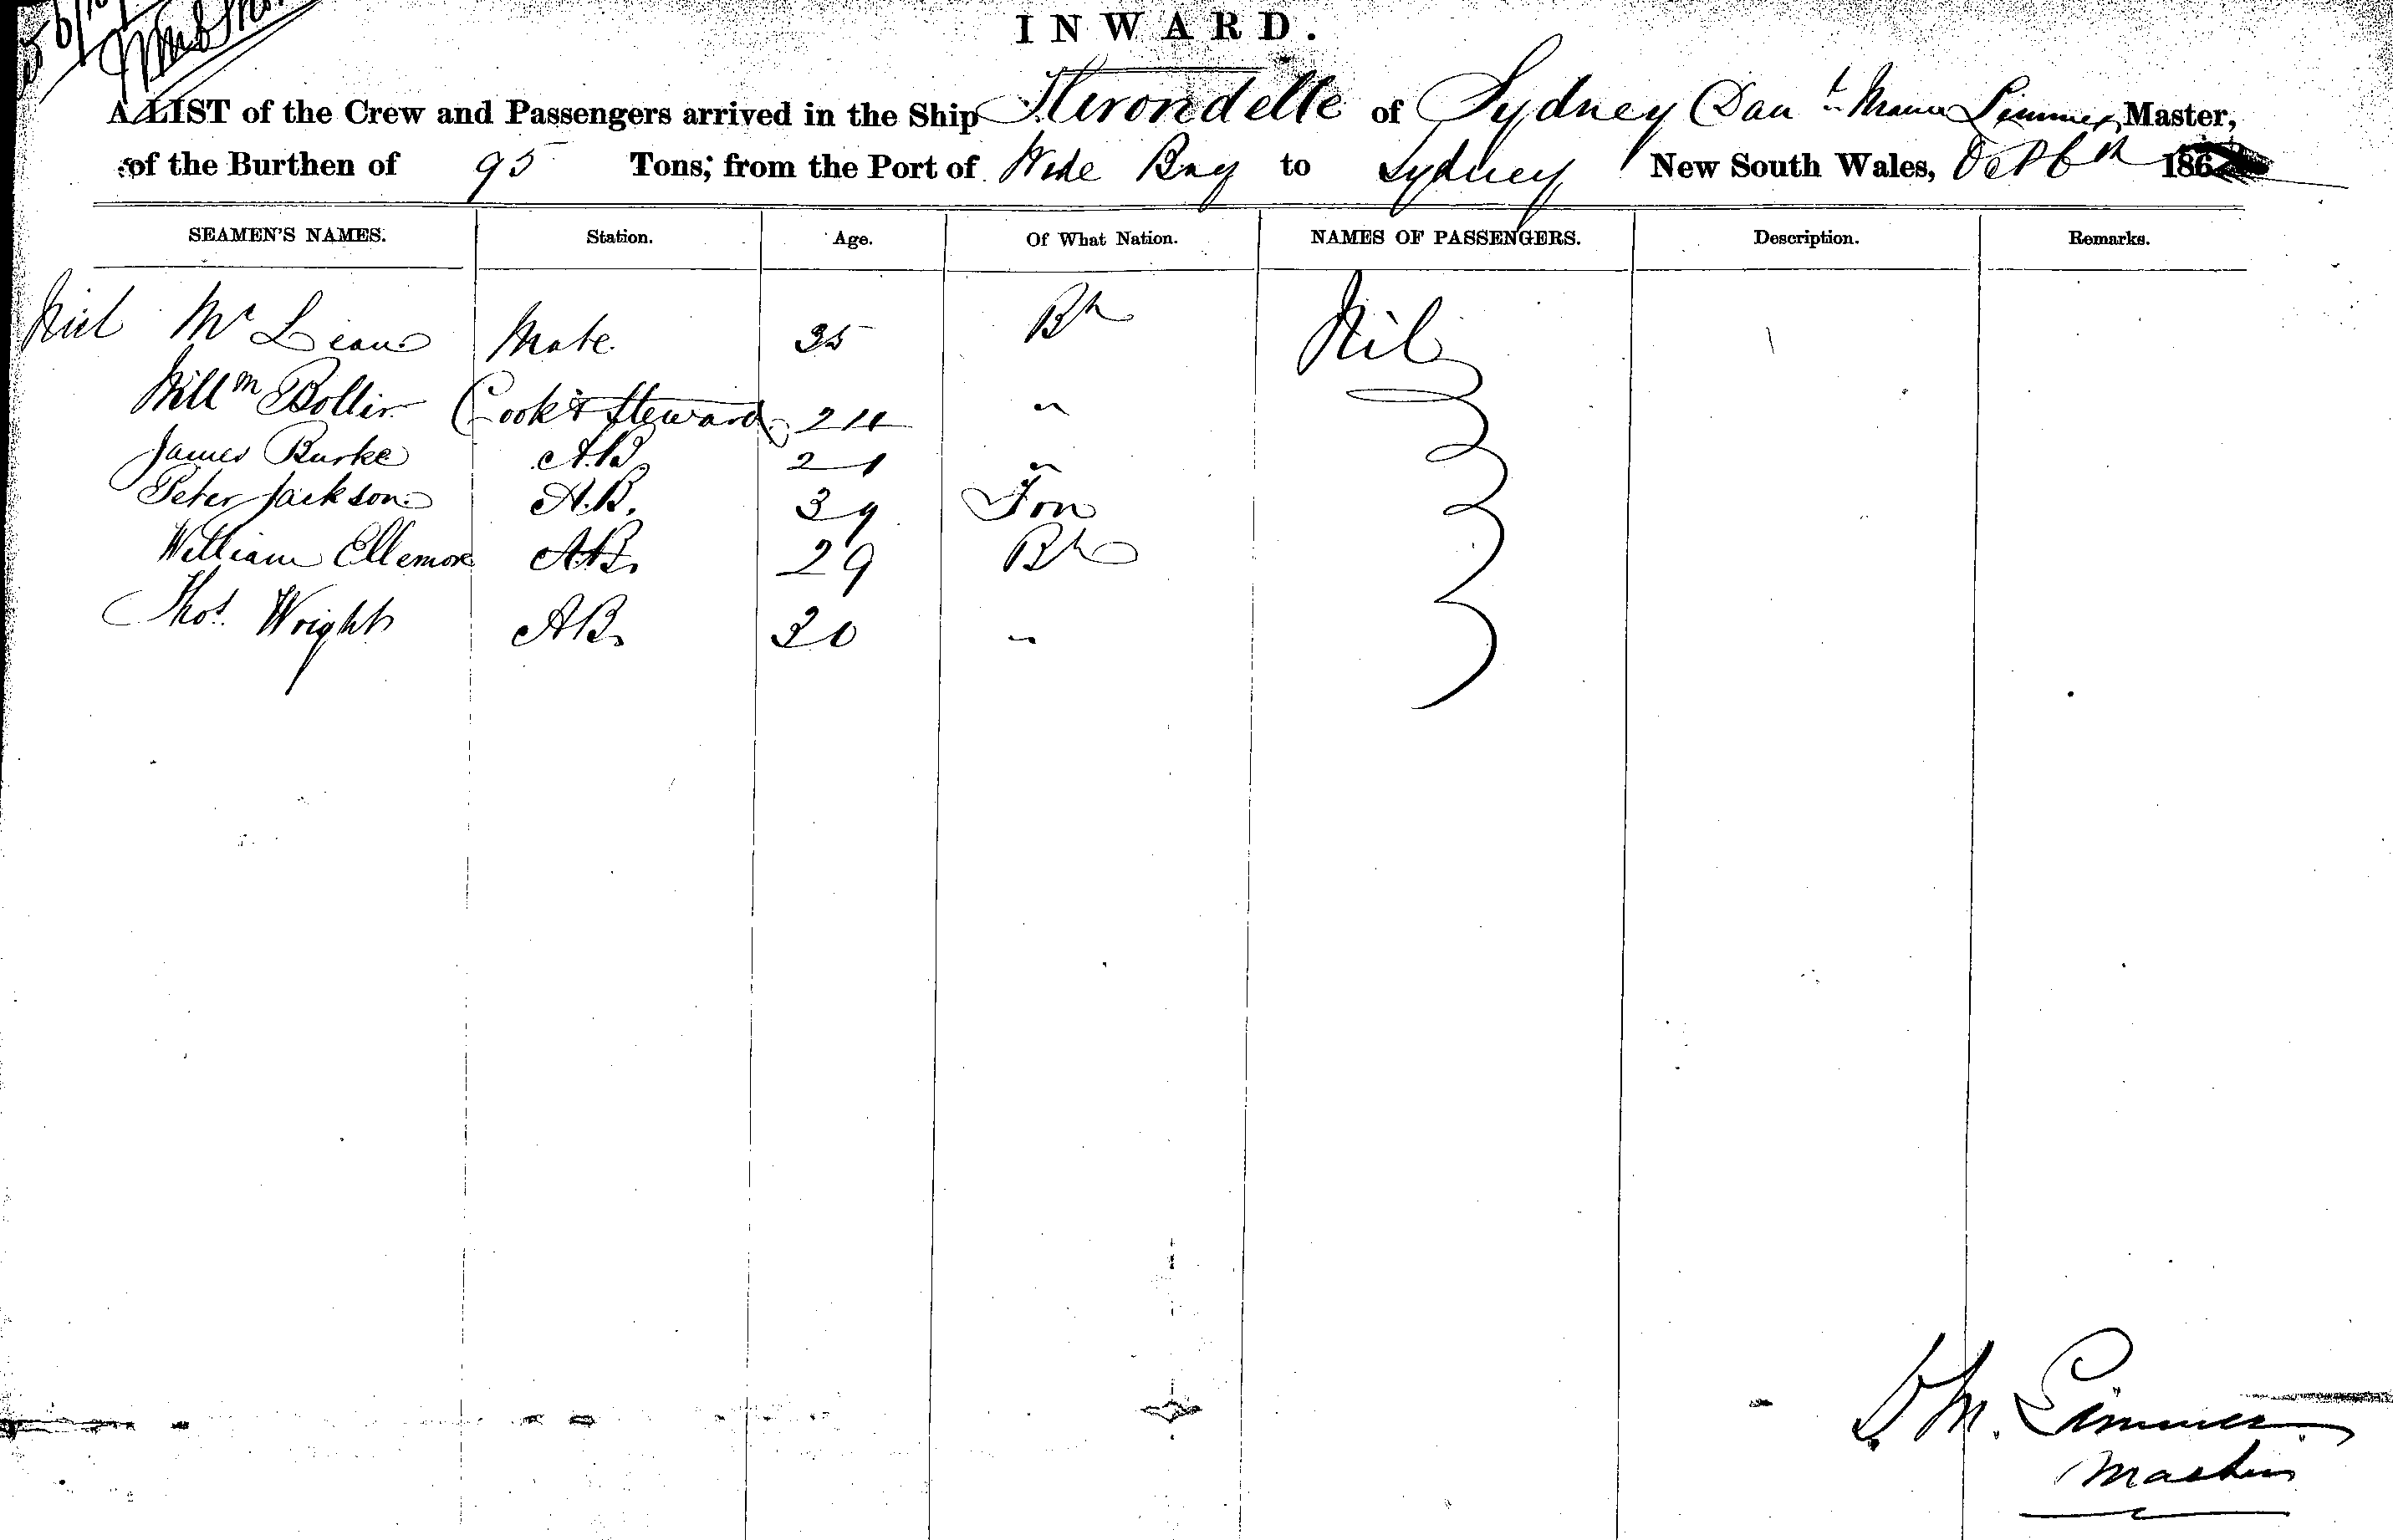 INWARD.
A LIST of the Crew and Passengers arrived in the Ship Hirondelle of Sydney Danl Limmer Master,
of the Burthen of 95 Tons, from the Port of Wide Bay to Sydney New South Wales, Oct 6th 186
SEAMEN'S NAMES. Station. Age. Of What Nation. NAMES OF PASSENGERS. Description. Remarks.
Niel Mc Lean Mate 35 Bh Nil
Willm Cook & Steward 24 "
James Burke A.B. 21 "
Peter Jackson A.B. 39 Fon
William Ellemore AB. 29 Bh
Thos. Wright AB. 30 "
D. M. Limmer
Master